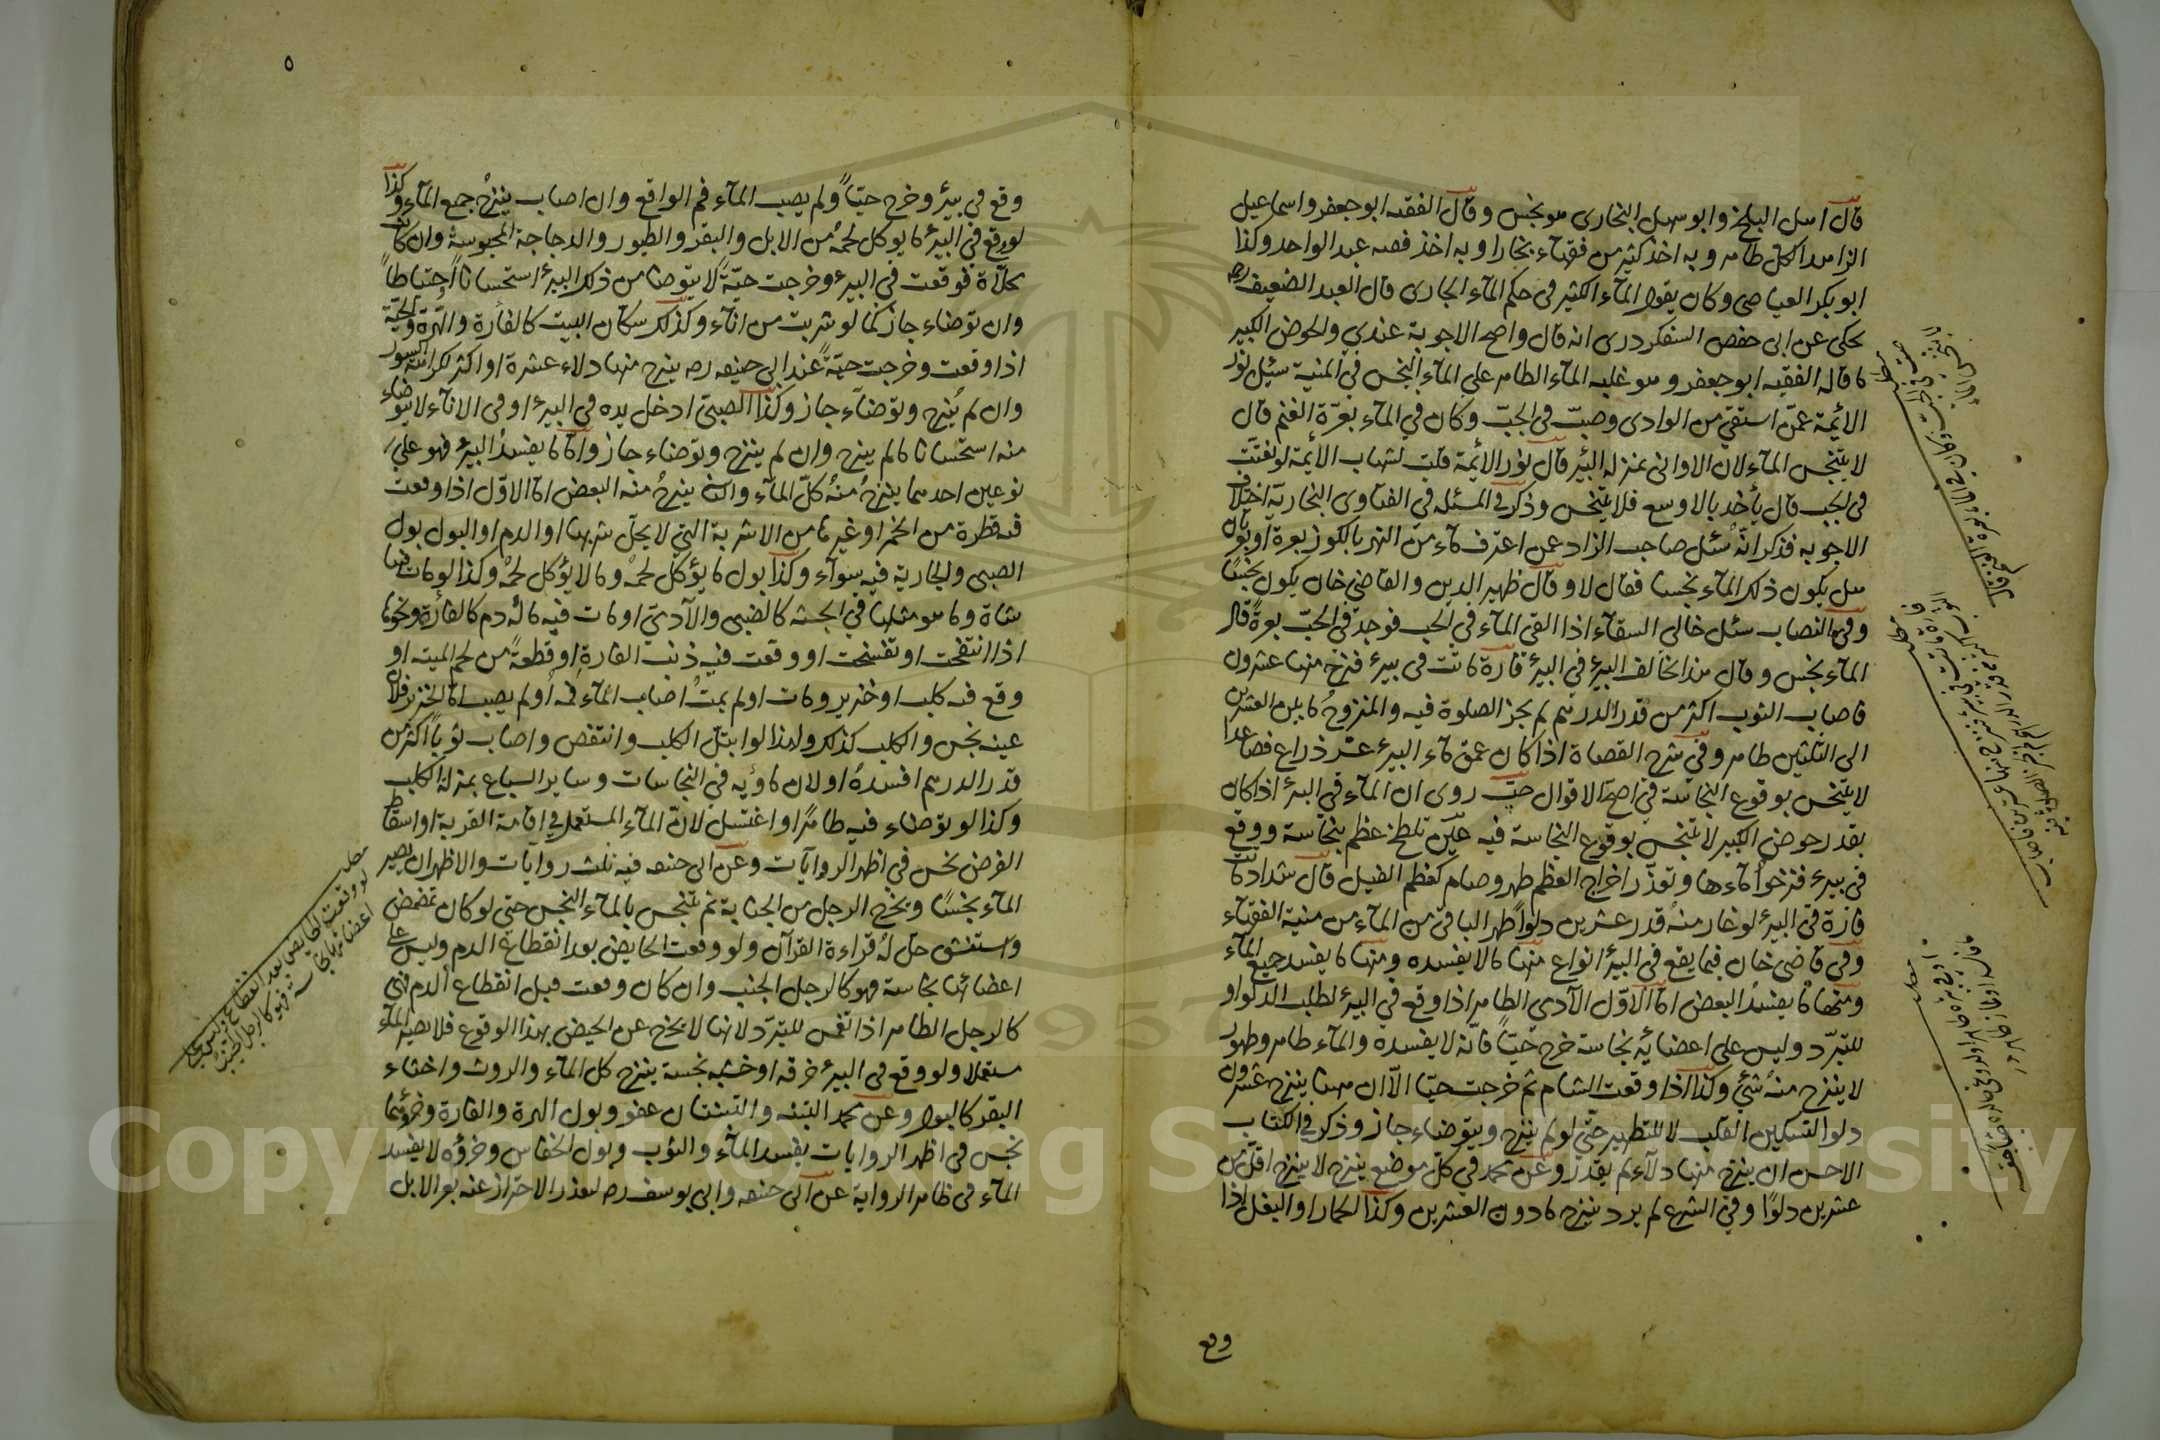 قال اهل البلخ وابو سهل البخارى هو نجس وقال الفقيه ابو جعفر واسماعيل
الزاهد الكل طاهر وبه اخذ كثير من فقهاء بخارا وبه اخذ فقيه عبد الواحد وكذا
ابو بكر العياضى وكان يقول المآء الكثير فى حكم المآء الجارى قال العبد الضعيف رحه
يحكى عن ابى حفص السفكردرى انه قال واصح الاجوبة عندي والحوض الكبير
ما قاله الفقيه ابو جعفر وهو غلبه المآء الطاهر علي المآء النجس في المنية سئل نور
الائمة عمن استقي من الوادى وصبّ فى الجبّ وكان في المآء بعرة الغنم قال
لا يتنجس المآء لان الاوانى بمنزله البئر قال نور الائمة قلت لشهاب الأئمة لو تفتّت
فى الجب قال يأخذ بالاوسع فلا يتنجس وذكر في المسئله فى الفتاوى البخارية اختلاف
الاجوبه فذكر انّه سُئل صاحب الزاد عمن اغترف مآء من النهر بالكوز بعرة او بول
هل يكون ذلك المآء نجسا فقال لا وقال ظهير الدين والقاضي خان يكون نجسًا
وفي النصاب سئل خالى السقآء اذا القي المآء في الجب فوجد في الجبّ بعرةً قال
المآء نجس وقال هذا يخالف البيرَ في البيرءُ فارة ماتت فى بيرءُ فنزح منها عشرون
فاصاب الثوب اكثر من قدر الدرهم لم يجز الصلوة فيه والمنزوحُ ما بين العشرين
الى الثلثين طاهر وفي شرح القضاة اذا كان عمق مآء البيرءُ عشر ذراع فصاعدا
لا يتنجس بوقوع النجاسة في اصح الاقوال حتّ روى ان المآء في البيرءُ اذا كان
بقدر حوض الكبير لا يتنجس بوقوع النجاسة فيه عيّن تلطخ عظم بنجاسة ووقع
فى بيرءُ فنزحوا مآءها وتعذّر اخراج العظم طهر وصار كعظم الفيل قال شداد ماتت
فارة في البيرءُ لو غار منهُ قدر عشرين دلوًا طهر الباقى من المآء من منية الفقهآء
وفي قاضى خان فيما يقع فى البيرءُ انواع منها ما لا يفسده ومنها ما يفسد جميع المآء
ومنها ما يفسدُ البعض امّا الاوّل الآدمى الطاهر اذا وقع في البيرءُ لطلب الدلو او
للتبرّد وليس على اعضايه نجاسة خرج حيّاً فانّه لا يفسده والمآء طاهر وطهور
لا ينزح منهُ شئٌ وكذا اذا وقعت الشاة ثم خرجت حيّا الّا ان ههنا ينزح عشرون
دلوا لتسكين القلب لا للتطهير حتّي لو لم ينزح ويتوضاء جاز وذكر في الكتاب
الاحسن ان ينزح منها دلآء لم يقدّر وعن محمد في كلّ موضع ينزح لا ينزح اقلّ من
عشرين دلوًا وفي الشرع لم يرد بنزح ما دون العشرين وكذا الحمار او البغل اذا
وقع
٥
وقع في بيرءُ وخرج حيّاً ولم يصب المآء فم الواقع وان اصاب ينزحُ جميع المآء وكذا
لو وقع في البيرءُ ما يوكل لحمهُ من الابل والبقر والطيور والدجاجة المحبوسة وان كانت
مخلّاة فوقعت في البيرءُ وخرجت حيّةً لا يتوضا من ذلك البيرءُ استحسانا احتياطاً
وان توضاء جاز كما لو شربت من انآء وكذلك سكّان البيت كالفأرة والهرّة والحيّة
اذا وقعت وخرجت حيّةً عند ابى حنيفه رحه ينزح منها دلاء عشرة او اكثر لكراهة السور
وان لم يُنزح وتوضاء جاز وكذا الصبيّ ادخل يده في البيرءُ او فى الانآء لا يتوضاء
منه استحسانا ما لم ينزح وان لم ينزح وتوضاء جاز وامّا ما يفسد البيرءُ فهو علي
نوعين احدهما ينزحُ منهُ كلّ المآء والثانى ينزحُ منه البعض امّا الاوّل اذا وقعت
فيه قطرة من الخمر او غيرها من الاشربة التي لا يحلّ شربها او الدم او البول بول
الصبى والجارية فيه سوآء وكذا بول ما يؤكل لحمهُ وما لا يؤكل لحمهُ وكذا لو ماتت فيها
شاة وما هو مثلها في الجثة كالضبى والآدميّ او مات فيه ما لهُ دم كالفأرة ونحوها
اذا انتفخت او تفسّخت او وقعت فيه ذنب الفارة او قطعةً من لحم الميته او
وقع فيه كلب او خنزير ومات او لم يمتْ اصاب المآء فمه او لم يصب امّا الخنزير فلان
عينه نجس والكلب كذلك ولهذا لو ابتلّ الكلب وانتفض واصاب ثوباً اكثر من
قدر الدرهم افسدهُ او لان مأويه في النجاسات وساير السباع بمنزلة الكلب
وكذا لو توضاء فيه طاهرًا او اغتسل لانّ المآء المستعمل في اقامة القربة او اسقاط
الفرض نجس في اظهر الروايات وعن ابى حنيفه فيه ثلث روايات والاظهر ان يصير
المآء نجسًا ويخرج الرجل من الجنابة ثم يتنجس بالمآء النجس حتي لو كان تمضمض
واستنشق حلّ لهُ قراءة القرآن ولو وقعت الحايض بعد انقطاع الدم وليس علي
اعضائها نجاسة فهو كالرجل الجنب وان كان وقعت قبل انقطاع الدم فهى
كالرجل الطاهر اذا انغمس للتبرّد لانها لا يخرج عن الحيض بهذا الوقوع فلا يصير المآء
مستعملا ولو وقع فى البيرءُ خرقه او خشبه نجسة ينزح كل المآء والروث واخثاء
البقر كالبول وعن محمد التبنه والتبنتان عفو وبول الهرة والفارة وخرؤهما
نجس في اظهر الروايات يفسد المآء والثوب وبول الخفاش وخرؤه لا يفسد
المآء فى ظاهر الرواية عن ابى حنيفه وابى يوسف رحه لتعذر الاحتراز عنه بعر الابل
مطلب
لو وقعت الحايض بعد انقطاع وليس على
اعضائها نجاسة فهو كالرجل الجنب
Copy King Saud University
1957